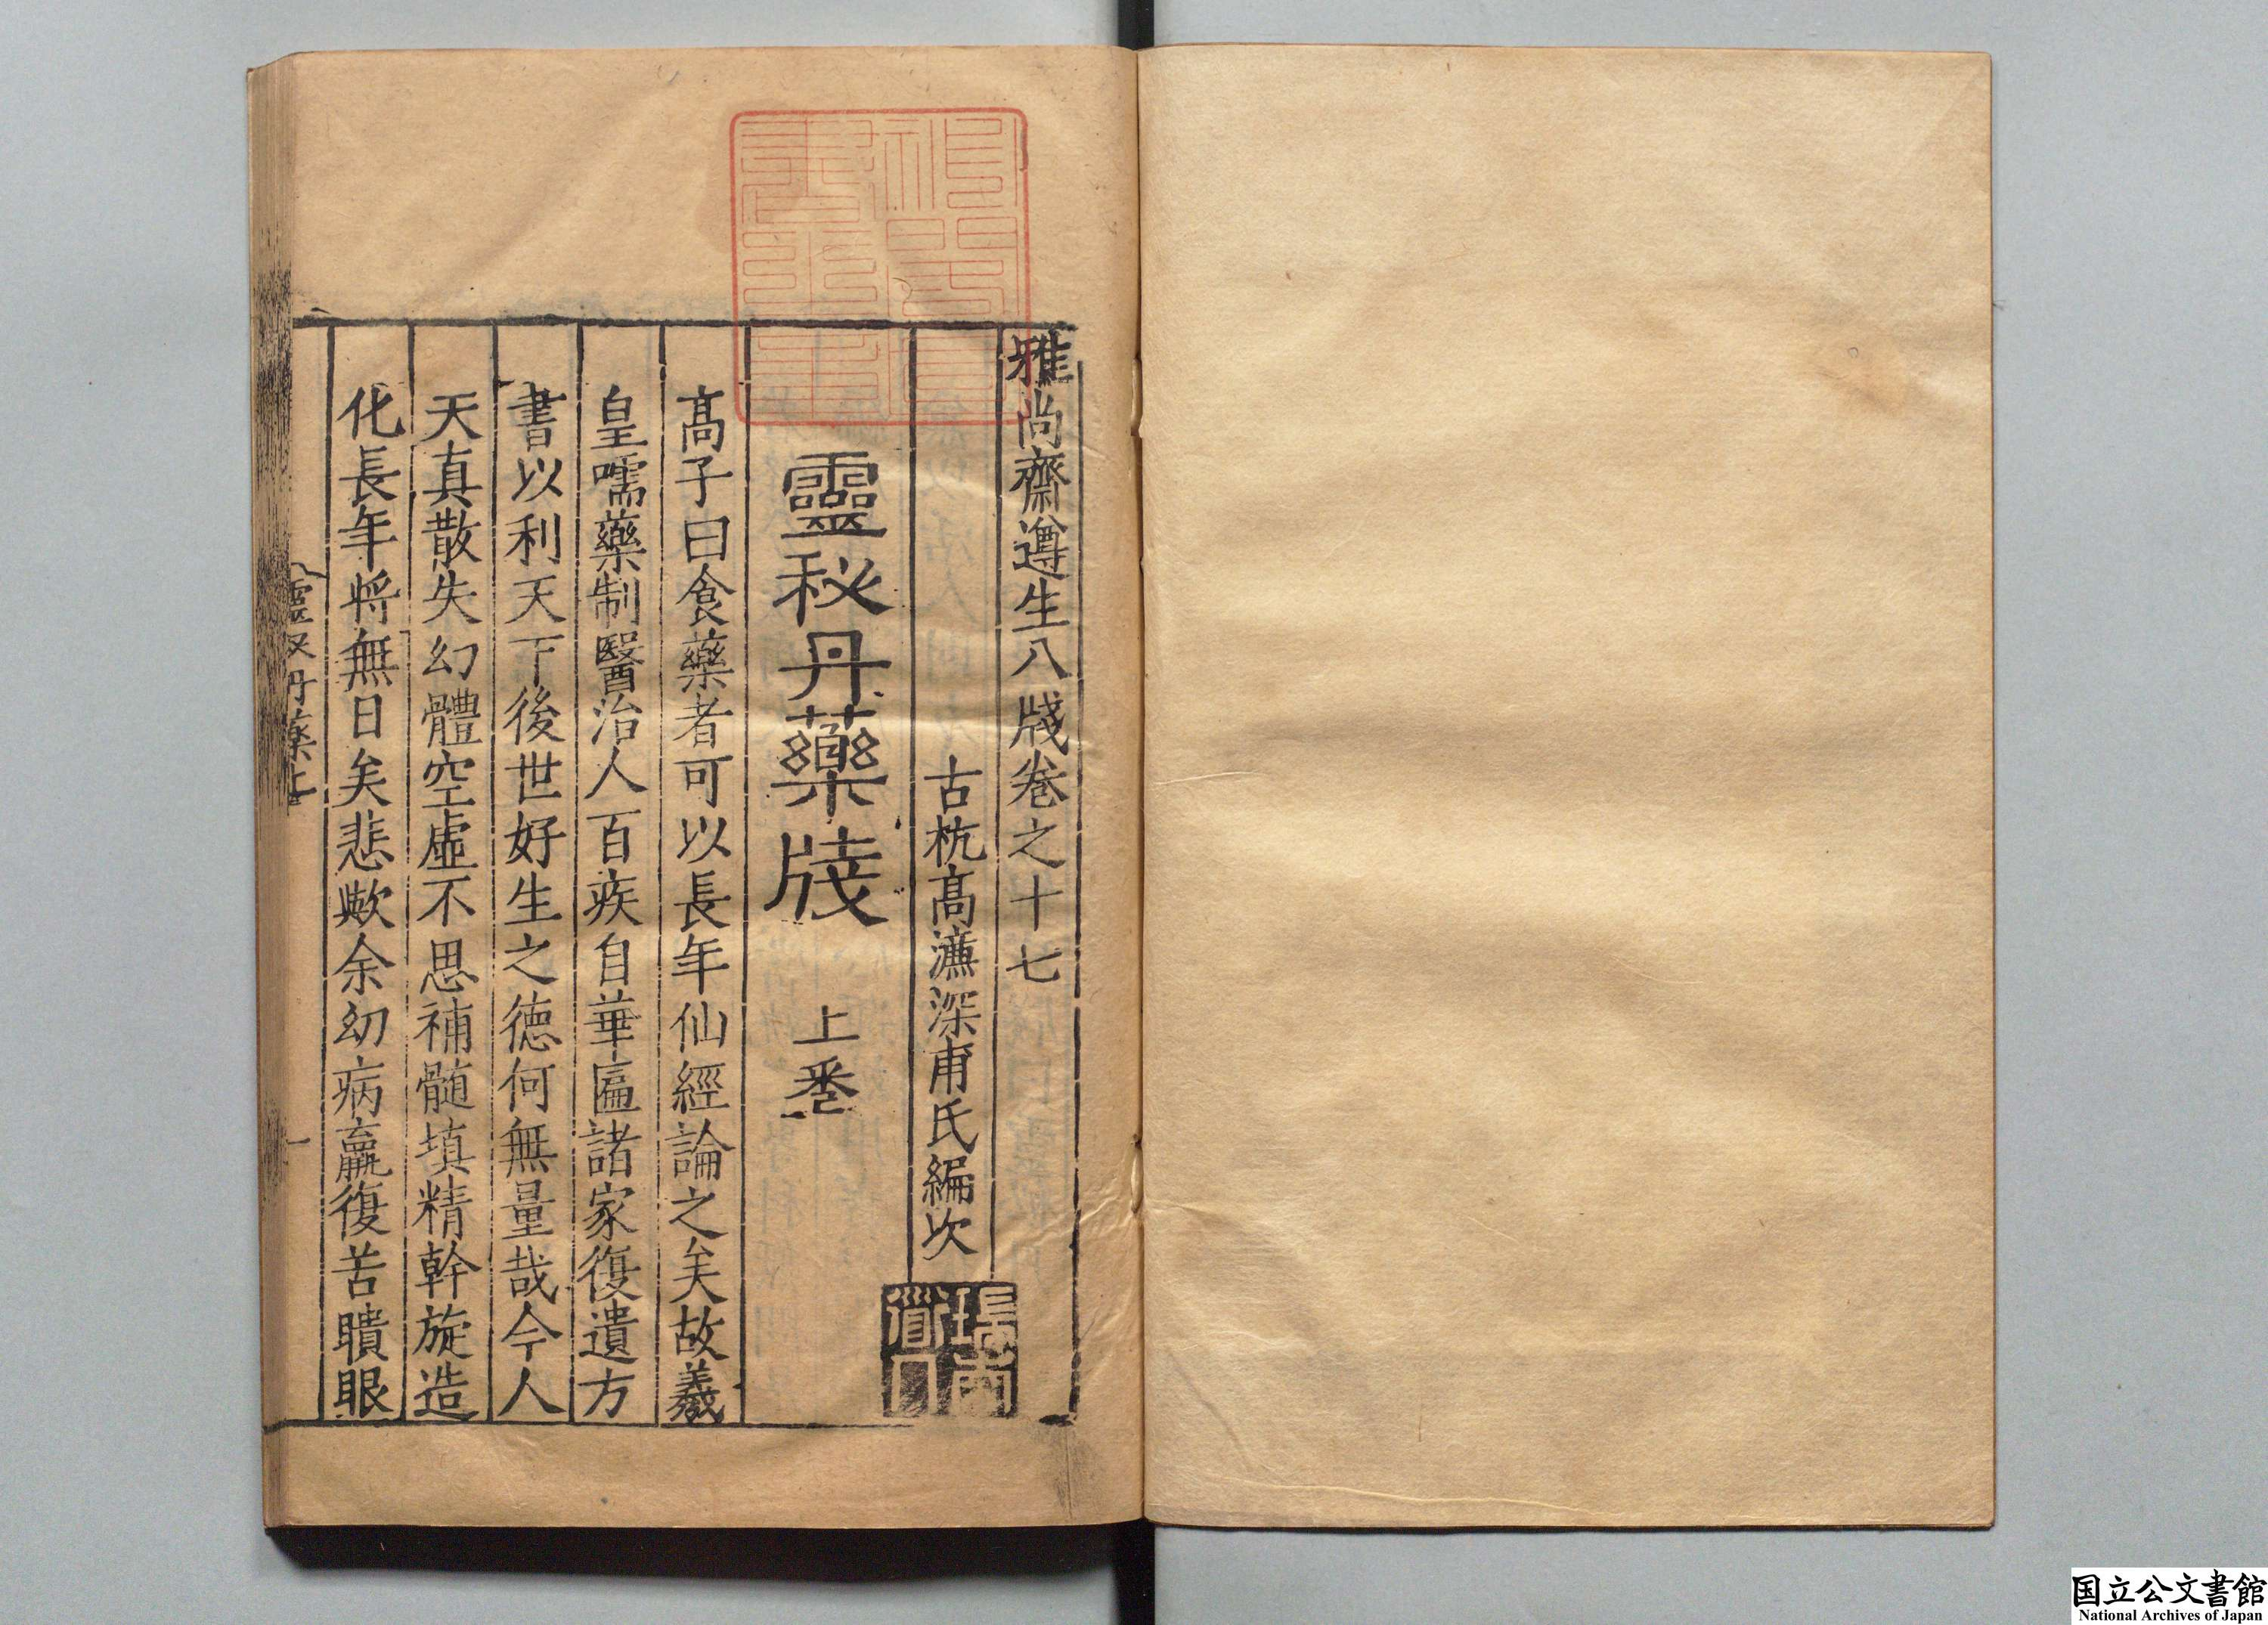 雅尚齋遵生八牋卷之十七
古杭高濂深甫氏編次
瑞南道人
靈秘丹藥牋 上卷
高子曰食藥者可以長年仙經論之矣故羲
皇嚅藥制醫治人百疾自華匾諸家復遺方
書以利天下後世好生之德何無量哉今人
天真散失幻體空虛不思補髄填精幹旋造
化長年將無日矣悲歟余幼病羸復苦瞶眼
靈秘丹藥上
一
国立公文書館
National Archives of Japan